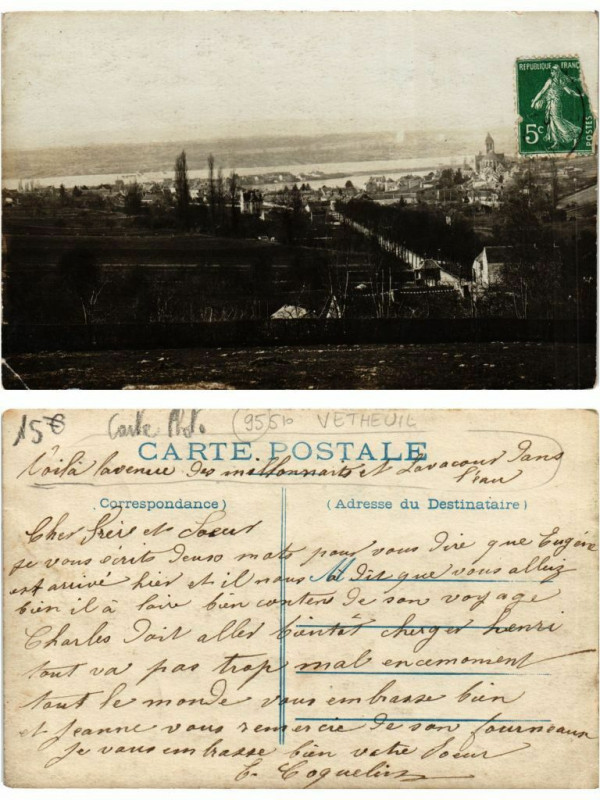 REPUBLIQUE FRANC
5c
POSTES
15€ Carte Phot. 95510 VETHEUIL
CARTE POSTALE
Voilà lavenue des mellonnarts et Lavacour dans
l'eau
(Correspondance) (Adresse du Destinataire)
Cher frère et Soeur
je vous écrits deux mots pour vous dire que Eugène
est arrivé hier et il nous dit que vous allez
bien il à laire bien contens de son voyage
Charles doit aller bientôt cherger henri
tout va pas trop mal encemoment
tout le monde vous embrasse bien
et Jeanne vous remercie de son fourneaux
je vous embrasse bien votre Soeur
C. Coquelin